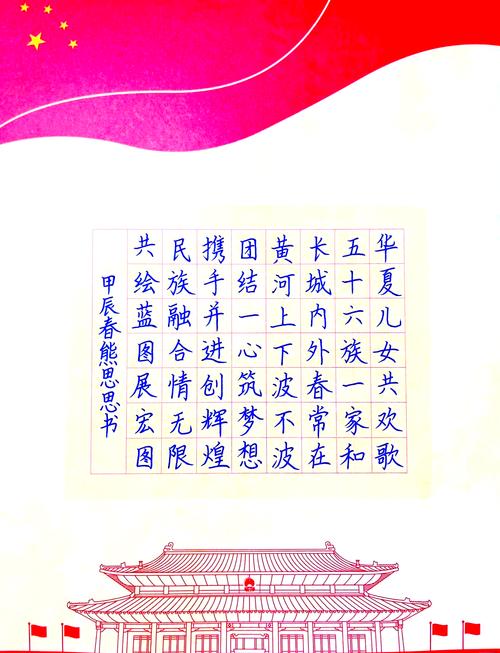 华夏儿女共欢歌
五十六族一家和
长城内外春常在
黄河上下波不波
团结一心筑梦想
携手并进创辉煌
民族融合情无限
共绘蓝图展宏图
甲辰春熊思思书